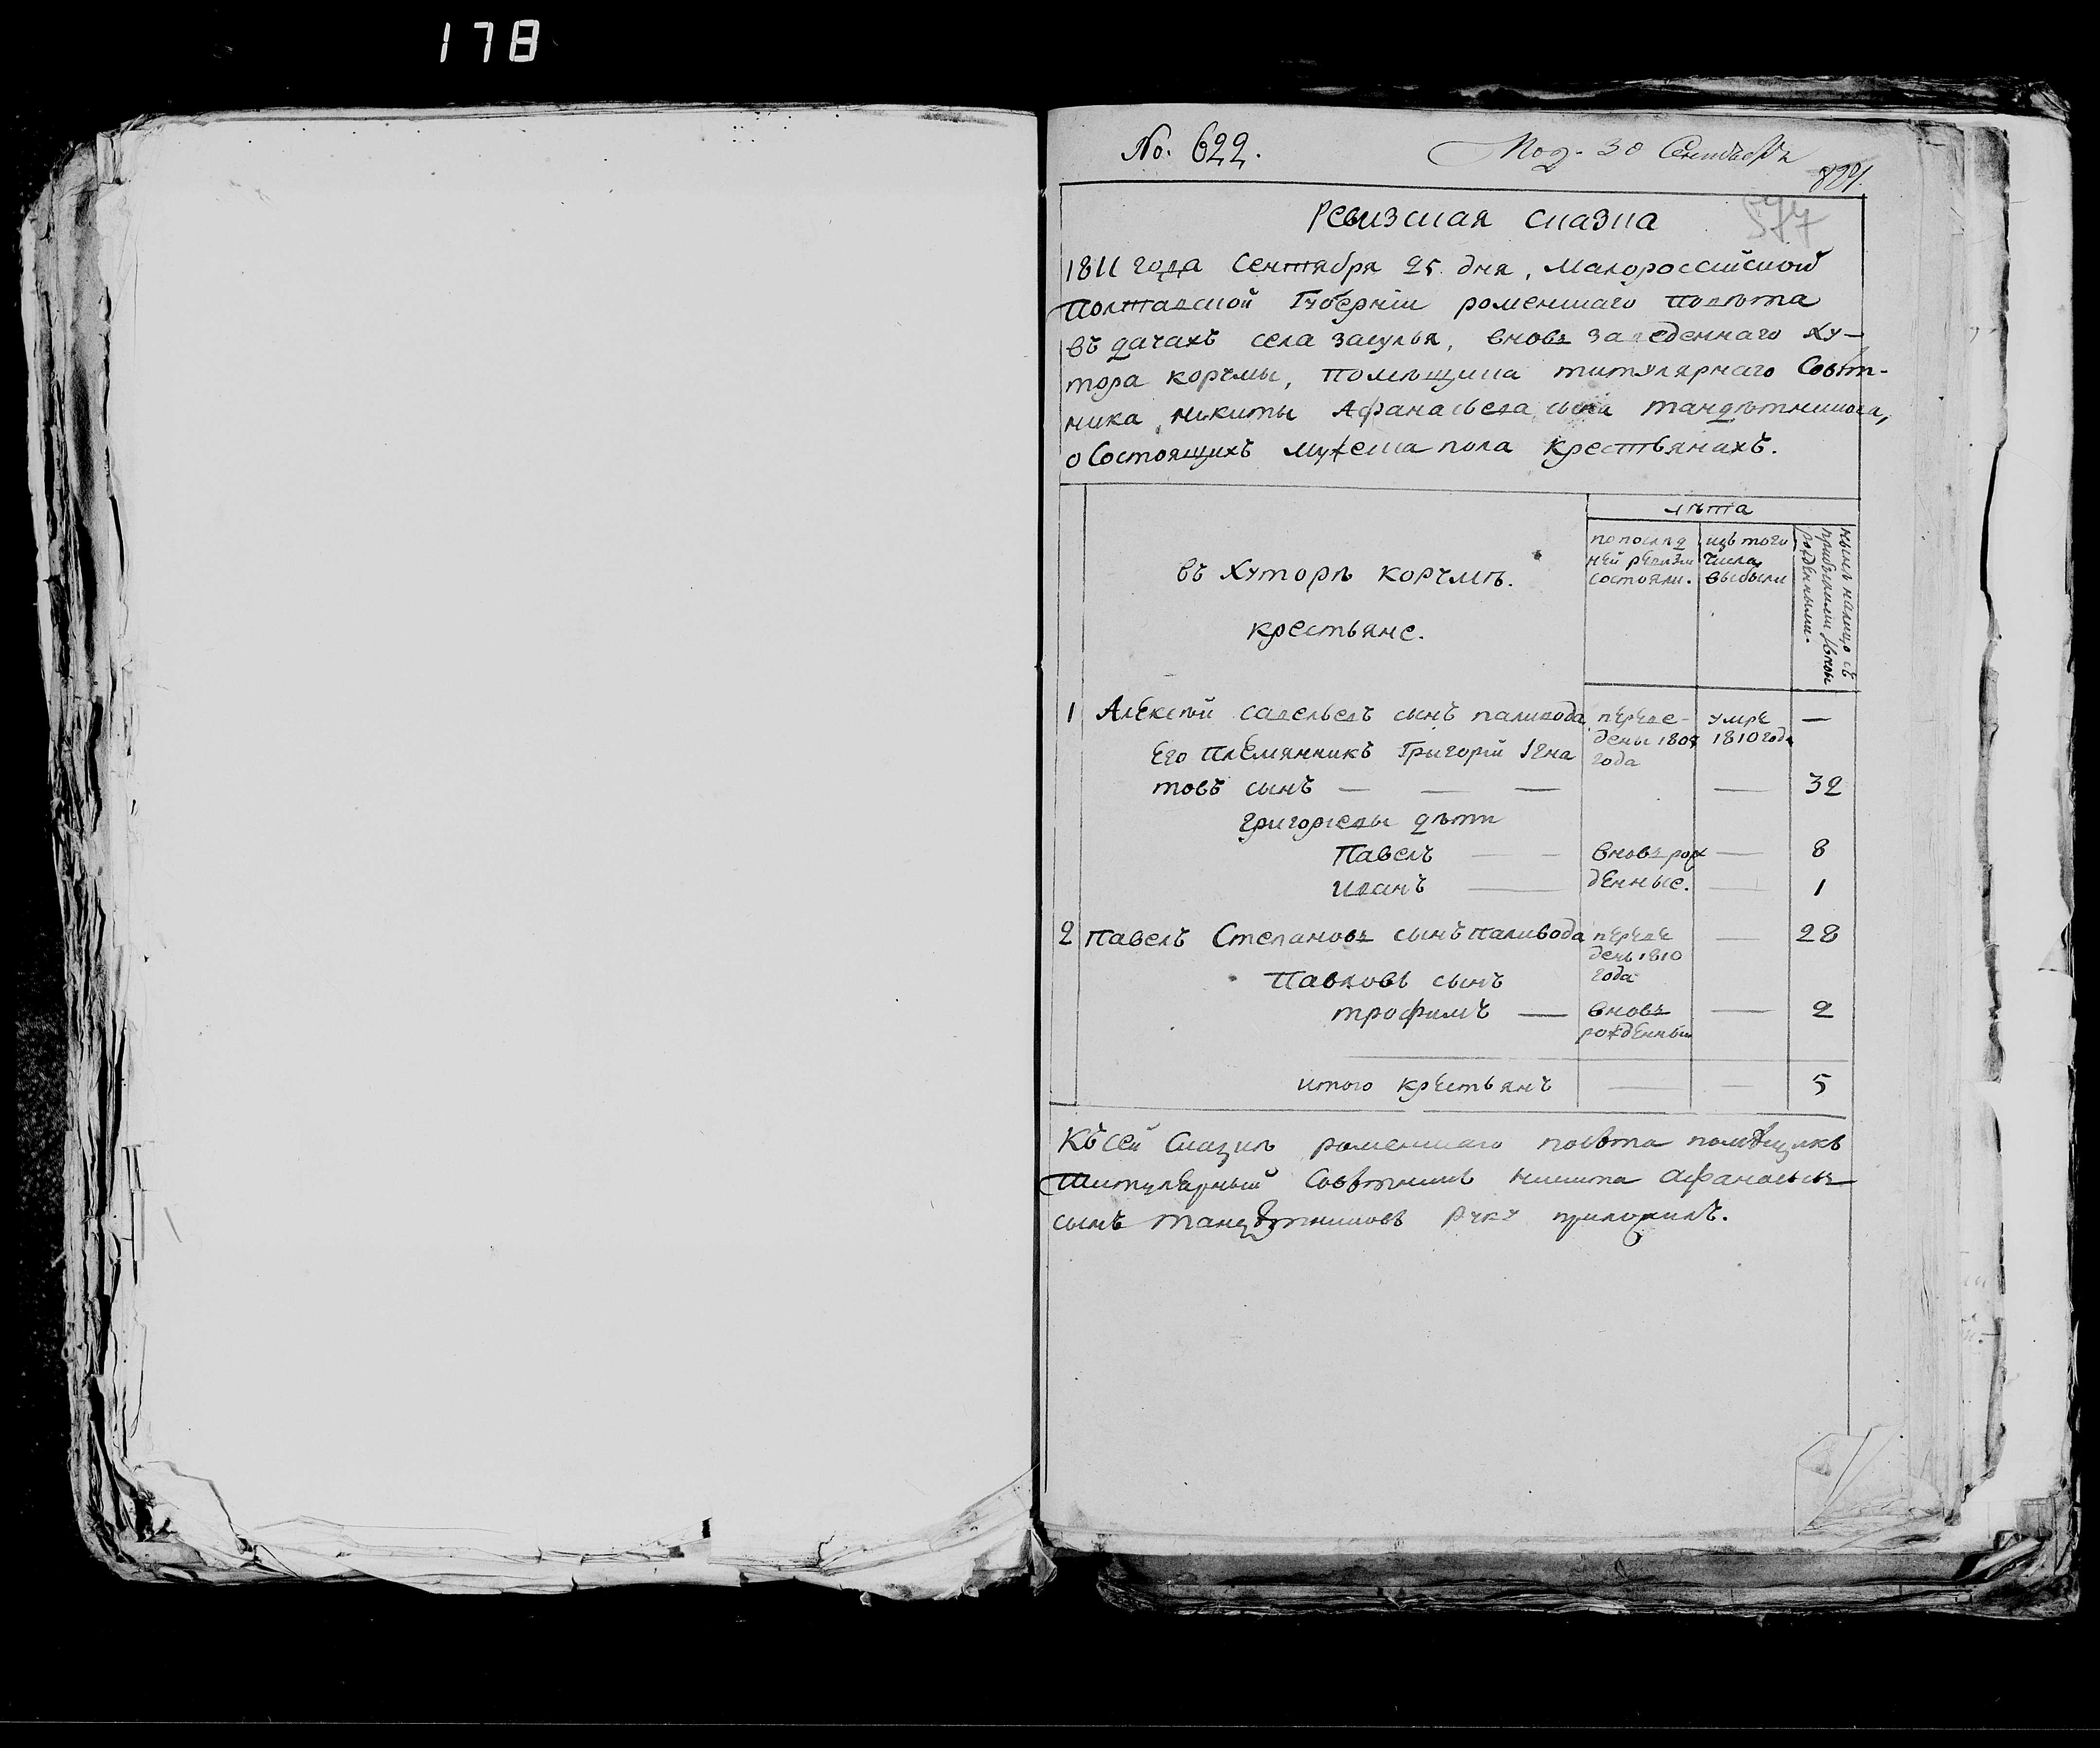 178
No. 622.
Под. 30 Сентября
821.
577
Ревизская сказка
1811 года Сентября 25 дня, Малороссійской
Полтавской Губерніи роменскаго повѣта
въ дачахъ села засулья, вновь заведеннаго ху-
тора корчмы, помѣщика титулярнаго Совѣт-
ника никиты Афанасьева сына
о Состоящихъ мужеска пола крестьянахъ.
лѣта
въ Хуторѣ корчмѣ.
крестьяне.
по послѣд
ней ревизіи
состояли.
изъ того
числа
выбыли
нынѣ налицо съ
прибылыми и вновь
рожденными.
1 Алексѣй савельевъ сынъ паливода переве- умре —
дены 1807 1810 года
Его племянникъ Григорій Игна года
товъ сынъ — — — — 32
григорьевы дѣти
Павелъ — — вновь рож — 8
иванъ — денные. — 1
2 Павелъ Степановъ сынъ паливода переве — 28
день 1810
Павловъ сынъ года
трофимъ — вновь — 2
рожденный
итого крестьянъ — — 5
Къ сей Сказкѣ роменскаго повѣта помѣщикъ
Титулярный Совѣтникъ никита афанасьевъ
сынъ руку приложилъ.